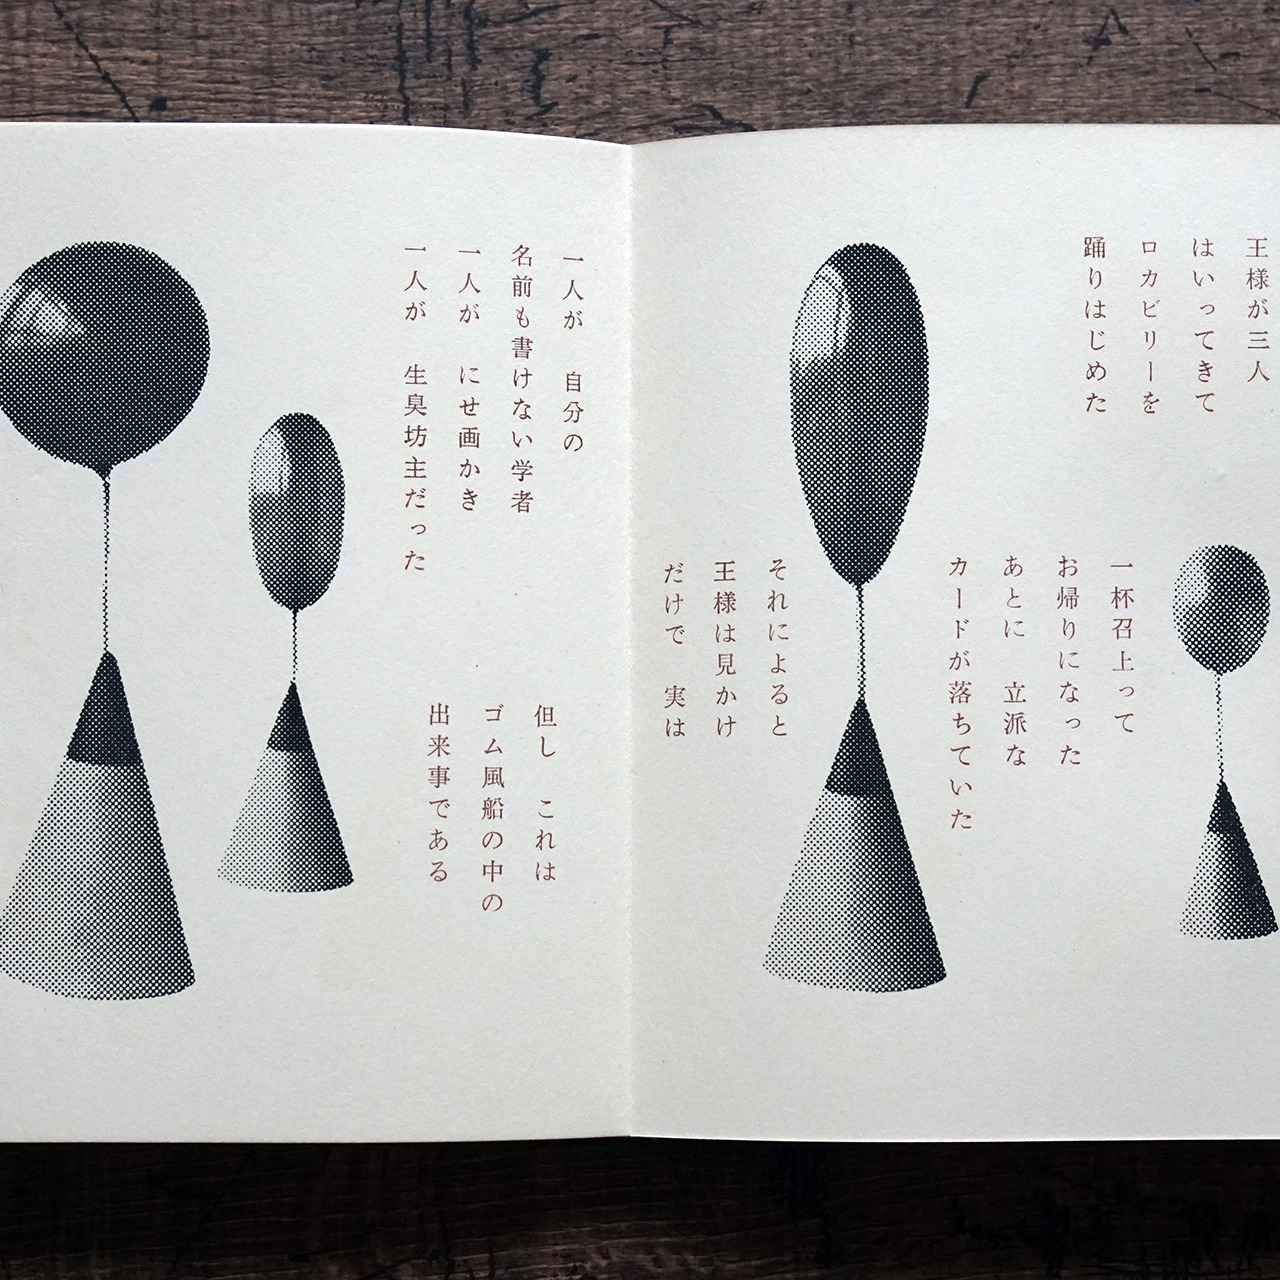 王様が三人
はいってきて
ロカビリーを
踊りはじめた
一杯召上って
お帰りになった
あとに　立派な
カードが落ちていた
それによると
王様は見かけ
だけで　実は
一人が　自分の
名前も書けない学者
一人が　にせ画かき
一人が　生臭坊主だった
但し　これは
ゴム風船の中の
出来事である